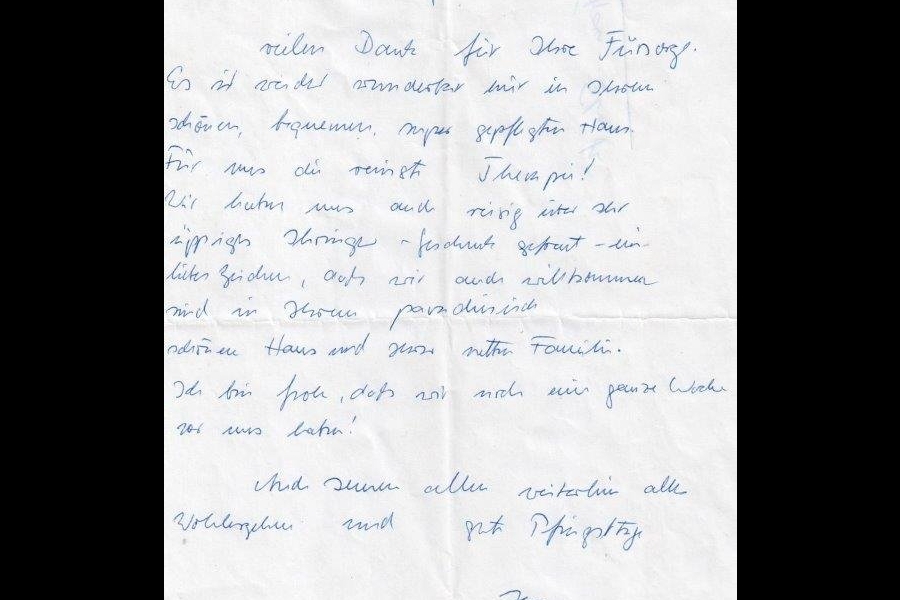 vielen Dank für Ihre Fürsorge.
Es ist wieder wunderbar hier in Ihrem
schönen, bequemen, super gepflegten Haus.
Für uns die reinste Therapie!
Wir haben uns auch riesig über Ihr
üppiges Geschenk gefreut – ein
liebes Zeichen, daß wir auch willkommen
sind in Ihrem paradiesisch
schönen Haus und Ihrer netten Familie.
Ich bin froh, daß wir noch eine ganze Woche
vor uns haben!
Auch Ihnen allen weiterhin alles
Wohlergehen und gute Pfingsttage